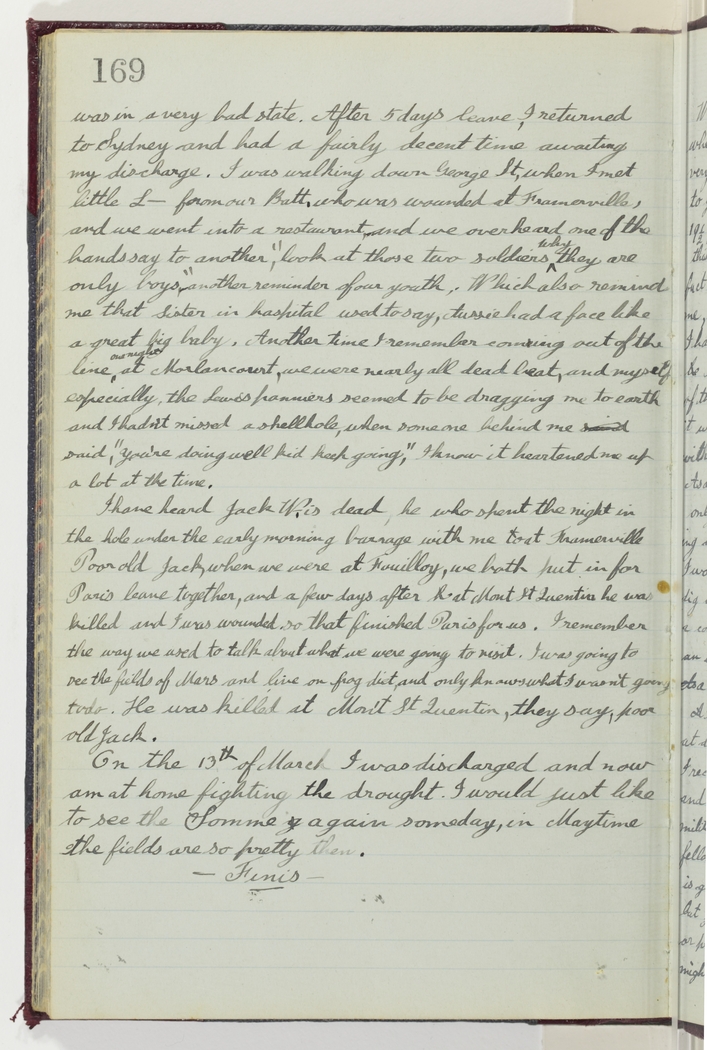 169
was in a very bad state. After 5 days leave, I returned
to Sydney and had a fairly decent time awaiting
my discharge. I was walking down George St, when I met
little L— from our Batt, who was wounded at Framerville,
and we went into a restaurant, and we overheard one of the
hands say to another, "look at those two soldiers, why they are
only boys," another reminder of our youth. Which also remind
me that Sister in hospital used to say, Aussie had a face like
a great big baby. Another time I remember coming out of the
line, one night at Morlancourt, we were nearly all dead beat, and myself
especially, the Lewis panniers seemed to be dragging me to earth
and I hadn't missed a shellhole, when someone behind me said
said, "You're doing well kid keep going," I know it heartened me up
a lot at the time.
I have heard Jack W. is dead, he who spent the night in
the hole under the early morning barrage with me at Framerville
Poor old Jack, when we were at Fouilloy, we both put in for
Paris leave together, and a few days after at Mont St Quentin he was
killed and I was wounded, so that finished Paris for us. I remember
the way we used to talk about what we were going to visit. I was going to
see the fields of Mars and live on frog diet, and only knows what I wasn't going
to do. He was killed at Mon't St Quentin, they say, poor
old Jack.
On the 13th of March I was discharged and now
am at home fighting the drought. I would just like
to see the Somme again someday, in Maytime
the fields are so pretty then.
— Finis —